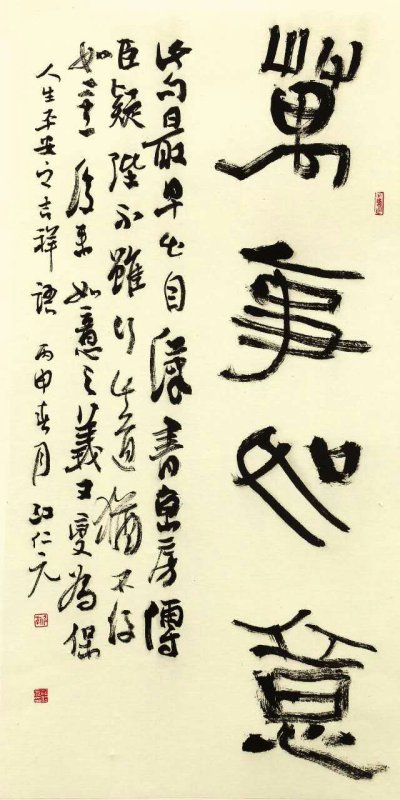 萬事如意
此句最早出自漢書京房傳
臣疑陛下雖行此道猶不得
如意後來如意之義又變為保
人生平安之吉祥語 丙申春月 仁元